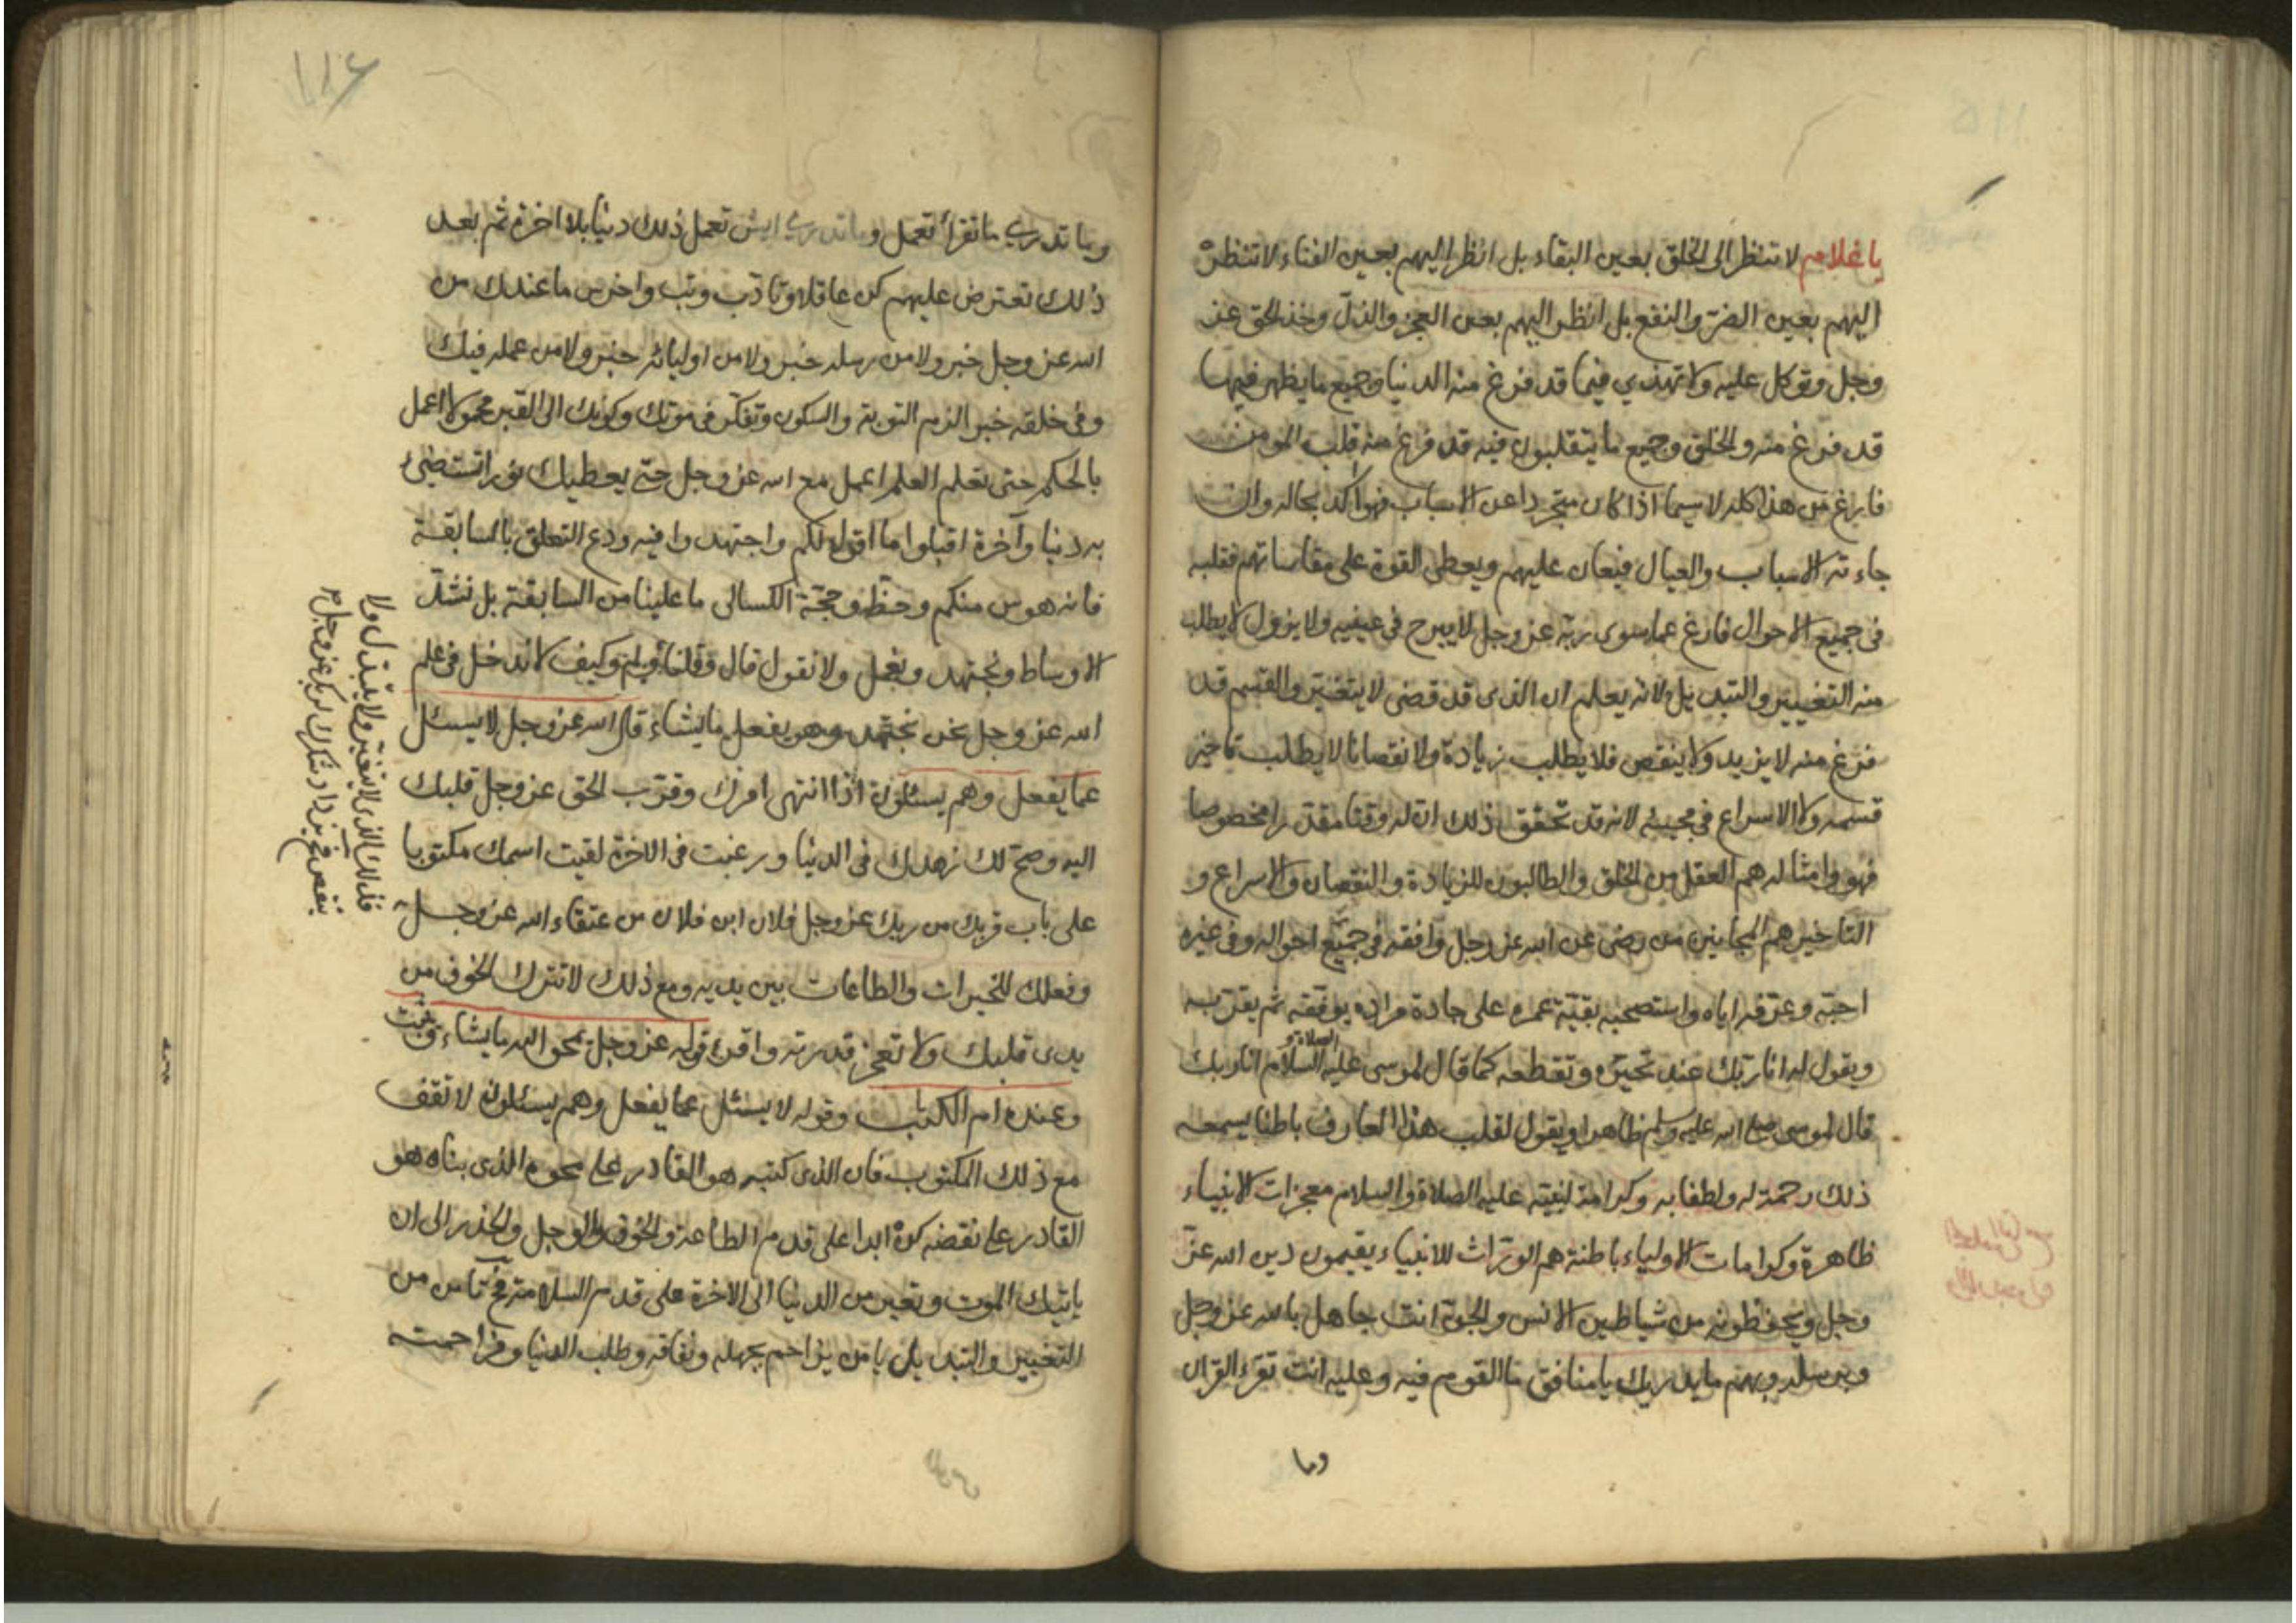 يا غلام لا تنظر الى الخلق بعين البقاء بل انظر اليهم بعين الفناء لا تنظر
اليهم بعين الضر والنفع بل انظر اليهم بعين العجز والذل وحد الحق عز
وجل وتوكل عليه ولا تهذي فيما قد فرغ منه الدنيا وجميع ما يظهر فيها
قد فرغ منه والخلق وجميع ما يتقلبون فيه قد فرغ منه قلب المومن
فارغ من هذا كله لا سيما اذا كان متجردا عن الاسباب فهو اكد بحاله وان
جاءته الاسباب والعيال فيعان عليهم ويعطى القوة على مقاساتهم فقلبه
فى جميع الاحوال فارغ عما سوى ربه عز وجل لا يبرح فى ولا يزول لا يطلب
منه التغيير والتبديل لانه يعلم ان الذى قد قضى لا يتغير والقسم قد
فرغ منه لا يزيد ولا ينقص فلا يطلب زيادة ولا نقصانا لا يطلب تاخير
قسمه ولا الاسراع فى مجيئه لانه قد تحقق ذلك ان له وقتا مقدرا مخصوصا
فهو وامثاله هم العقل من الخلق والطالبون للزيادة والنقصان والاسراع و
التاخير هم المجانين من رضى عن الله عز وجل وافقه فى جميع احواله وفى غيره
احبه وعرفه اياه واستصحبه بقية عمره على جادة مراده يوفقه ثم يقربه
ويقول له انا ربك عند تحيره وتقطعه كما قال لموسى عليه الصلاة والسلام انا ربك
قال لموسى صلى الله عليه وسلم ظاهرا ويقول لقلب هذا العارف باطنا يسمعه
ذلك رحمة له ولطفا به وكرامة لنبيه عليه الصلاة والسلام معجزات الانبياء
ظاهرة وكرامات الاولياء باطنة هم الوراث للانبياء يقيمون دين الله عز
وجل ويحفظونه من شياطين الانس والجن انت جاهل بالله عز وجل
وبرسله وبهم ما يدريك يا منافق ما القوم فيه وعليه انت تقرء القران
وما
١١٦
وما تدري ما تقرأ تعمل وما تدري ايش تعمل ذلك دنيا بلا اخرة ثم بعد
ذلك تعترض عليهم كن عاقلا وتاذب وتب واخرس ما عندك من
الله عز وجل خبر ولا من رسله خبر ولا من اوليائه خبر ولا من عمله فيك
وفى خلقه خبر الزم التوبة والسكون وتفكر فى موتك وكونك الى القبر محمولا اعمل
بالحكم حتى تعلم العلم اعمل مع الله عز وجل حتى يعطيك نورا تستضئ
به دنيا وآخرة اقبلوا ما اقول لكم واجتهدوا فيه ودع التعلق بالسابقة
فانه هوس منكم وحظ وحجة الكسالى ما علينا من السابقة بل نشد
الاوساط ونجتهد ونعمل ولا نقول قال وقلنا ولم وكيف لا ندخل فى علم
الله عز وجل نحن نجتهد وهو يفعل ما يشاء قال الله عز وجل لا يسئل
عما يفعل وهم يسئلون اذا انتهى امرك وقرب الحق عز وجل قلبك
اليه وصح لك زهدك فى الدنيا ورغبت فى الاخرة لقيت اسمك مكتوبا
على باب قربك من ربك عز وجل فلان ابن فلان من عتقاء الله عز وجل
فذلك الذى لا يتغير ولا يتبدل ولا
ينقص فح يزداد شكرك لربك عز وجل
وفعلك للخيرات والطاعات بين يديه ومع ذلك لا تترك الخوف من
يدى قلبك ولا تعجز قدرته واقرء قوله عز وجل يمحو الله ما يشاء ويثبت
وعنده ام الكتاب وقوله لا يسئل عما يفعل وهم يسئلون لا تقف
مع ذلك المكتوب فان الذى كتبه هو القادر على محوه الذى بناه هو
القادر على نقضه كن ابدا على قدم الطاعة والخوف والوجل والحذر الى ان
ياتيك الموت وتعبر من الدنيا الى الاخرة على قدم السلامة فح تآمن من
التغيير والتبديل يا من يزاحم بجهله ونفاقه وطلب الدنيا ومزاحمته